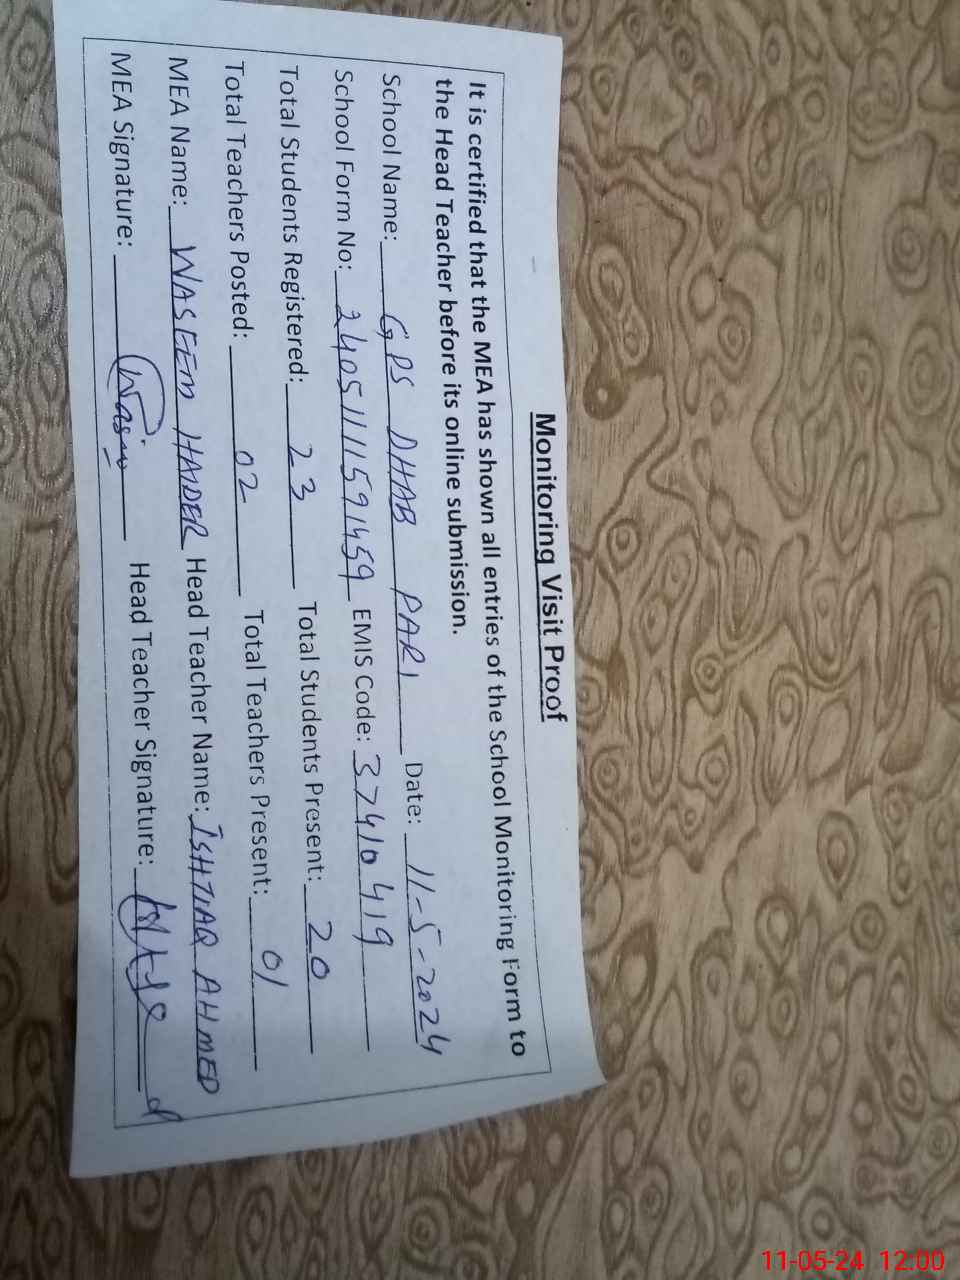 Monitoring Visit Proof
It is certified that the MEA has shown all entries of the School Monitoring Form to
the Head Teacher before its online submission.
School Name: GPS DHAB PARI Date: 11-5-2024
School Form No: 24051111591459 EMIS Code: 37410419
Total Students Registered: 23 Total Students Present: 20
Total Teachers Posted: 02 Total Teachers Present: 01
MEA Name: WASEEM HAIDER Head Teacher Name: ISHTIAQ AHMED
MEA Signature: Head Teacher Signature:
11-05-24 12:00